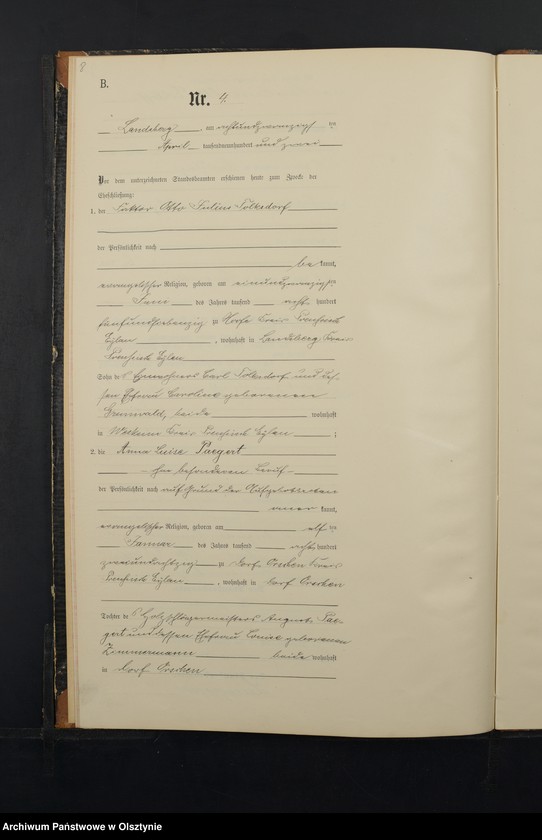 8
B.
Nr. 4.
Landsberg, am achtundzwanzigsten
April tausendneunhundert und zwei
Vor dem unterzeichneten Standesbeamten erschienen heute zum Zwecke der
Eheschließung:
1. der Otto Julius Folksdorf
der Persönlichkeit nach
be kannt,
evangelischer Religion, geboren am einundzwanzigsten
Juni des Jahres tausend acht hundert
fünfundsiebenzig zu Kreis Preußisch
Eylau, wohnhaft in Landsberg Kreis
Preußisch Eylau
Sohn des Carl Folksdorf und des-
sen Ehefrau Caroline geborenen
Grunwald, beide wohnhaft
in Kreis Preußisch Eylau;
2. die Anna Luise Paegert
ohne besonderen Beruf
der Persönlichkeit nach auf Grund der
aner kannt,
evangelischer Religion, geboren am elften
Januar des Jahres tausend acht hundert
zweiundachtzig zu Dorf Kreis
Preußisch Eylau, wohnhaft in Dorf
Tochter des August Pae-
gert und dessen Ehefrau Louise geborenen
Zimmermann beide wohnhaft
in Dorf
Archiwum Państwowe w Olsztynie